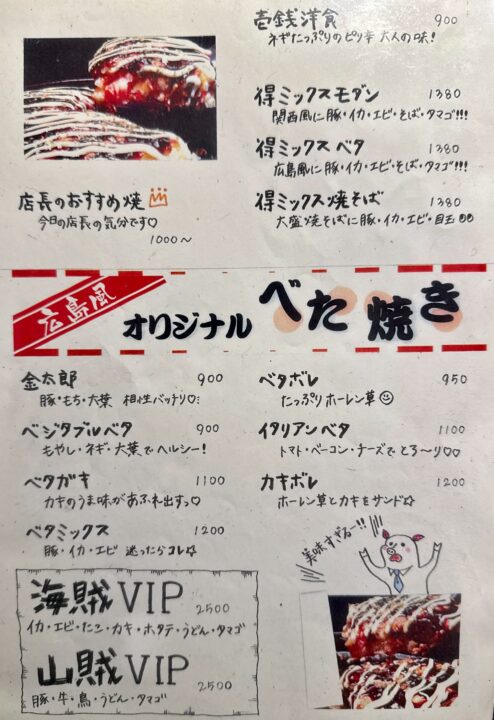 壱銭洋食 900
ネギたっぷりのピリ辛 大人の味!
得ミックスモダン 1380
関西風に豚・イカ・エビ・そば・タマゴ!!!
得ミックスベタ 1380
広島風に豚・イカ・エビ・そば・タマゴ!!!
得ミックス焼そば 1380
大盛焼そばに豚・イカ・エビ・目玉
店長のおすすめ焼
今日の店長の気分です♡
1000～
広島風 オリジナル べた焼き
金太郎 900
豚・もち・大葉 相性バッチリ♡
ベジタブルベタ 900
もやし・ネギ・大葉でヘルシー!
ベタガキ 1100
カキのうま味があふれ出すっ♡
ベタミックス 1200
豚・イカ・エビ 迷ったらコレ☆
ベタボレ 950
たっぷりホーレン草☺
イタリアンベタ 1100
トマト・ベーコン・チーズでとろ～り♡♡
カキボレ 1200
ホーレン草とカキをサンド☆
美味すぎるー!!
海賊VIP 2500
イカ・エビ・たこ・カキ・ホタテ・うどん・タマゴ
山賊VIP 2500
豚・牛・鳥・うどん・タマゴ